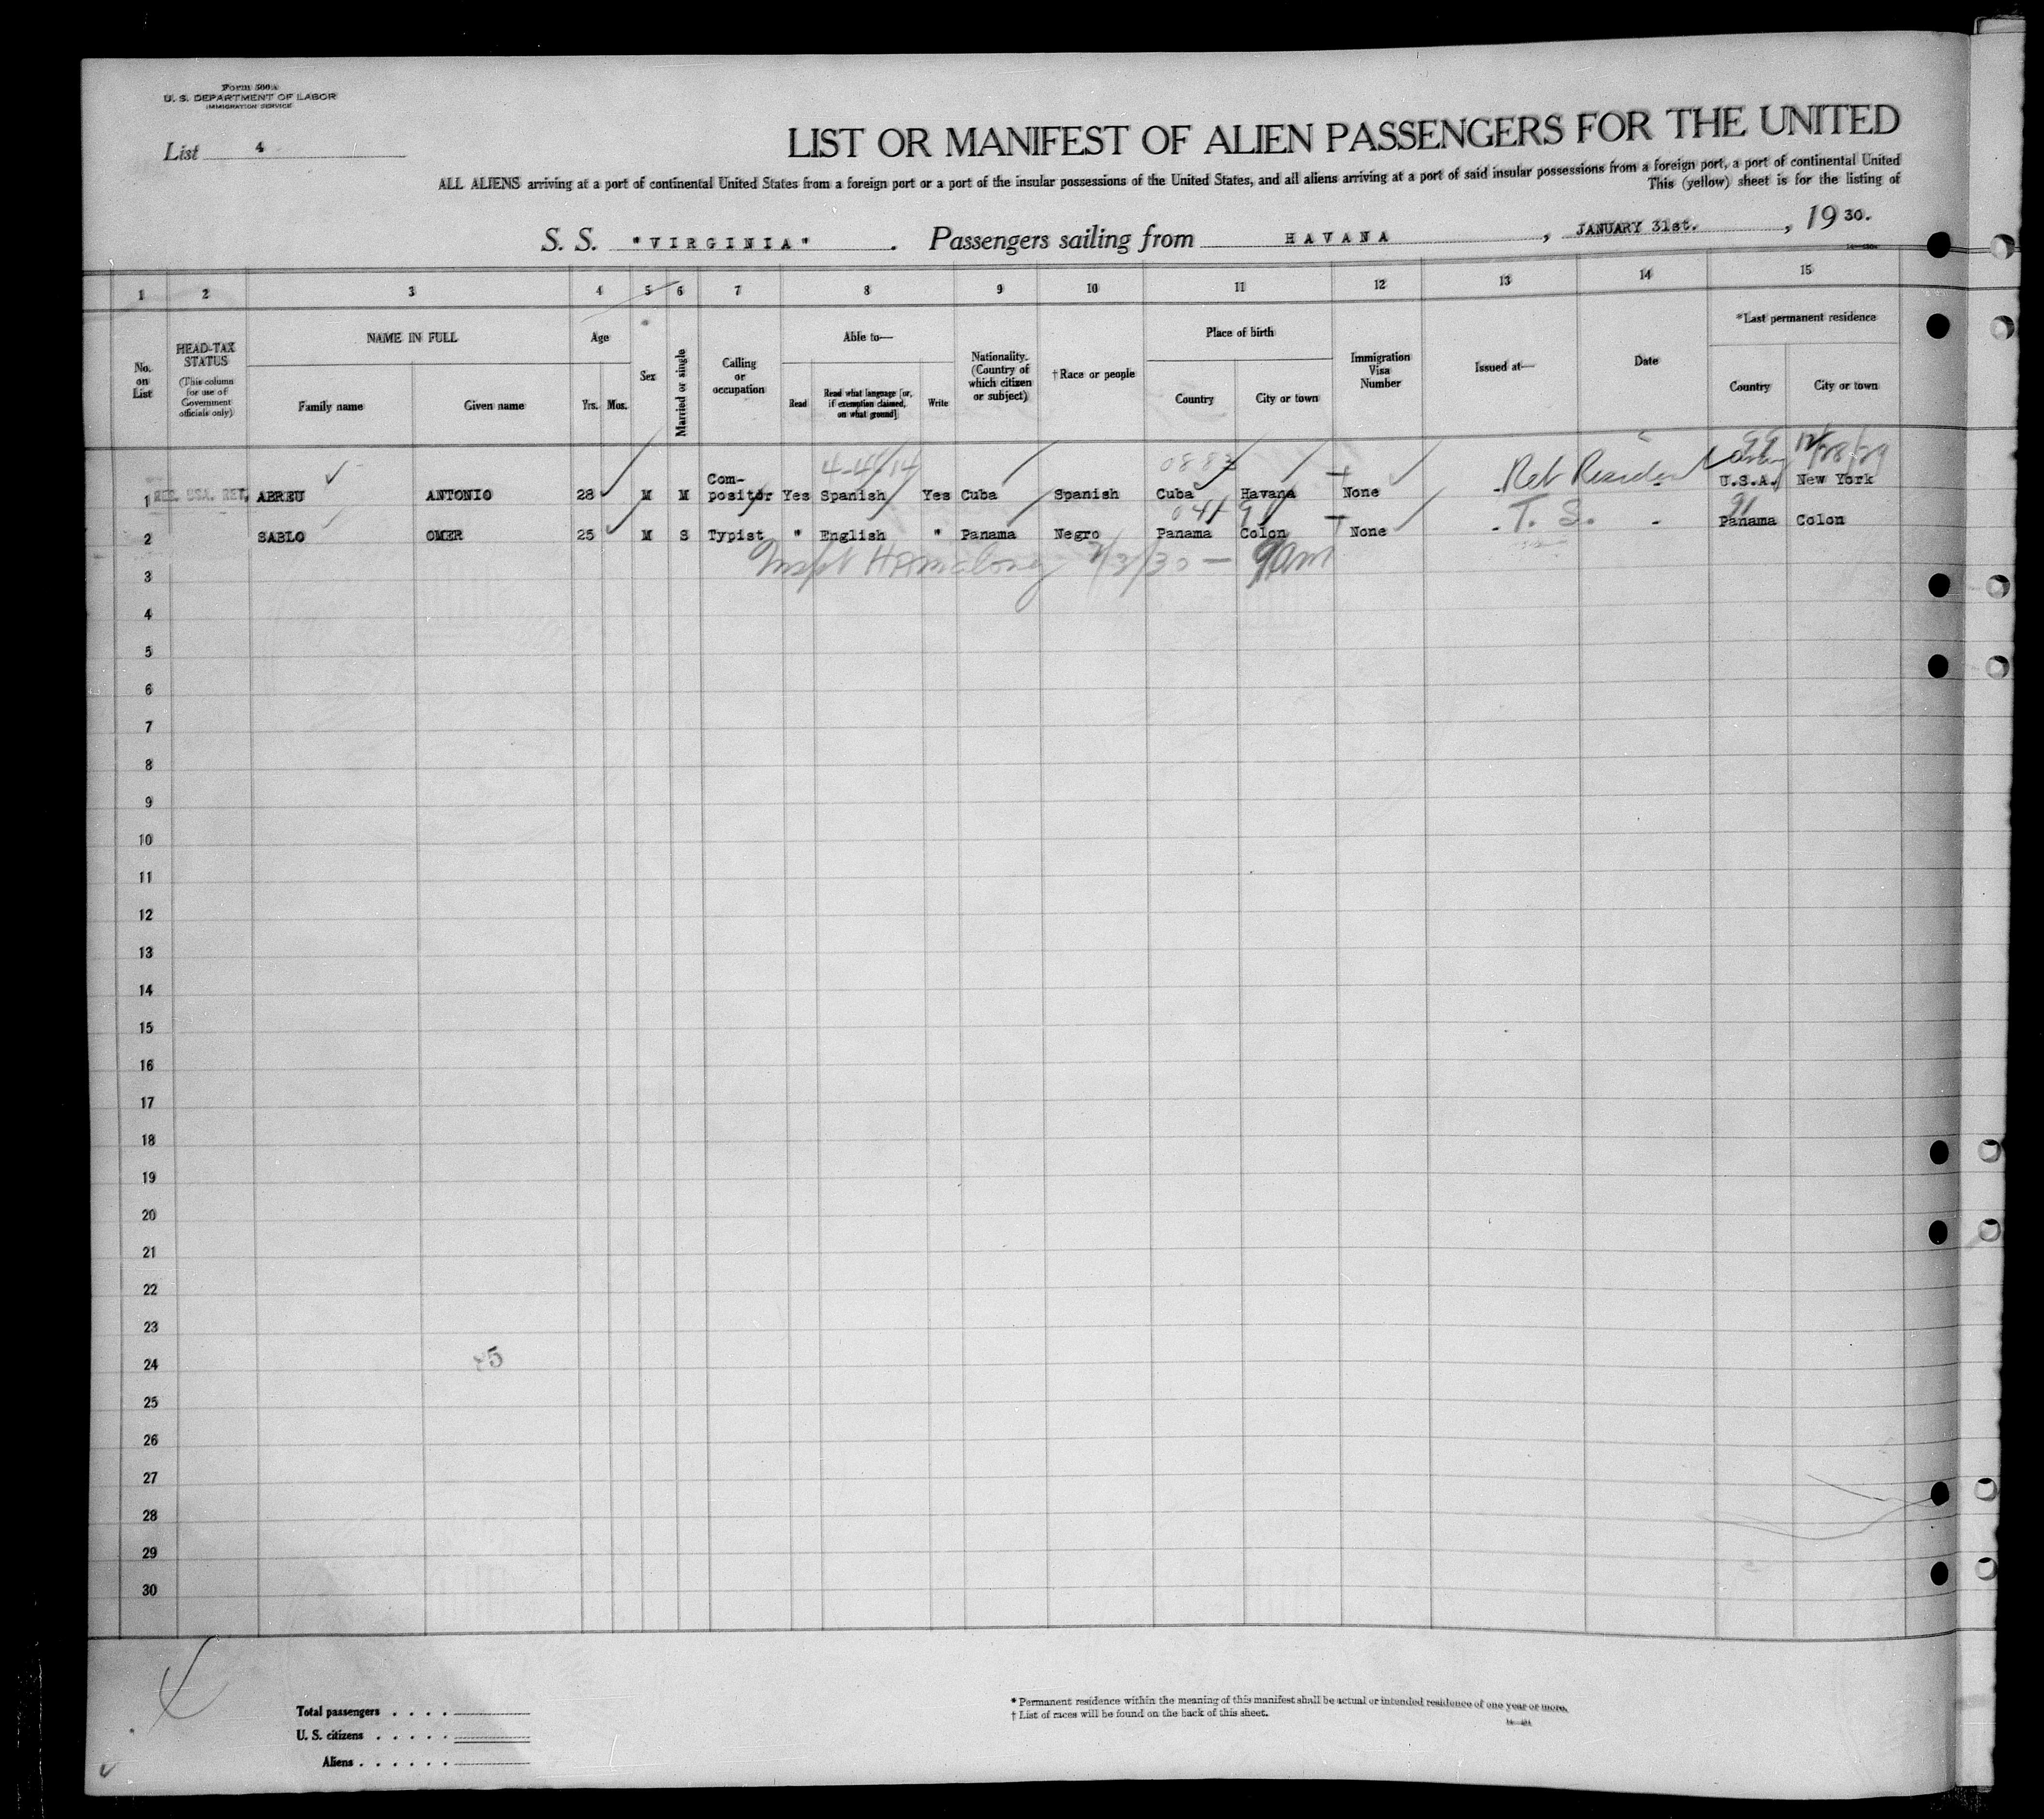 Form 500 A
U. S. DEPARTMENT OF LABOR
IMMIGRATION SERVICE
List 4
LIST OR MANIFEST OF ALIEN PASSENGERS FOR THE UNITED
ALL ALIENS arriving at a port of continental United States from a foreign port or a port of the insular possessions of the United States, and all aliens arriving at a port of said insular possessions from a foreign port, a port of continental United
This (yellow) sheet is for the listing of
S. S. "VIRGINIA" . Passengers sailing from HAVANA , JANUARY 31st. , 19 30.
1 2 3 4 5 6 7 8 9 10 11 12 13 14 15
No. on List
HEAD-TAX STATUS (This column for use of Government officials only)
NAME IN FULL
Family name Given name
Age
Yrs. Mos.
Sex
Married or single
Calling or occupation
Able to—
Read Read what language [or, if exemption claimed, on what ground] Write
Nationality. (Country of which citizen or subject)
†Race or people
Place of birth
Country City or town
Immigration Visa Number
Issued at—
Date
*Last permanent residence
Country City or town
4-4/14 0883 99 12/28/29
1 RES. USA. RET. ABREU ANTONIO 28 M M Com-positor Yes Spanish Yes Cuba Spanish Cuba Havana None - Ret Resident - U.S.A. New York
041 91 91
2 SABLO OMER 25 M S Typist " English " Panama Negro Panama Colon None - T. S. - Panama Colon
3 2/3/30 — 9am
4
5
6
7
8
9
10
11
12
13
14
15
16
17
18
19
20
21
22
23
24
25
26
27
28
29
30
Total passengers . . . .
U. S. citizens . . . . .
Aliens . . . . . .
* Permanent residence within the meaning of this manifest shall be actual or intended residence of one year or more.
† List of races will be found on the back of this sheet.